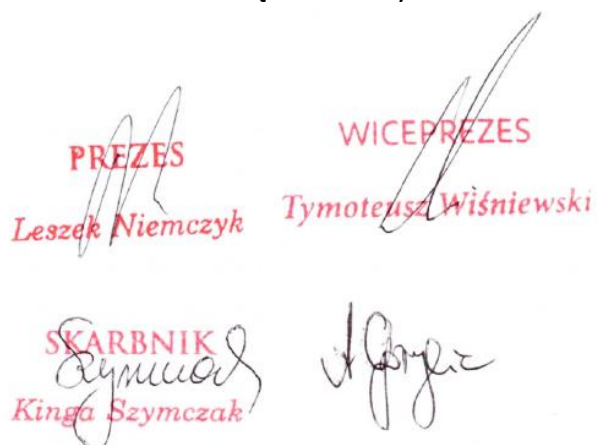 PREZES
Leszek Niemczyk
WICEPREZES
Tymoteusz Wiśniewski
SKARBNIK
Kinga Szymczak